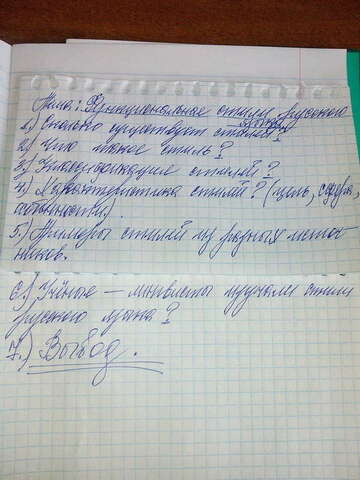 Тема: Функциональные стили русского
языка
1.) Сколько существует стилей?
2.) Что такое стиль?
3.) Классификация стилей?
4.) Характеристика стилей? (цель, сфера,
особенности).
5.) Примеры стилей из разных источ-
ников.
6.) Учёные – лингвисты изучали стили
русского языка?
7.) Вывод.